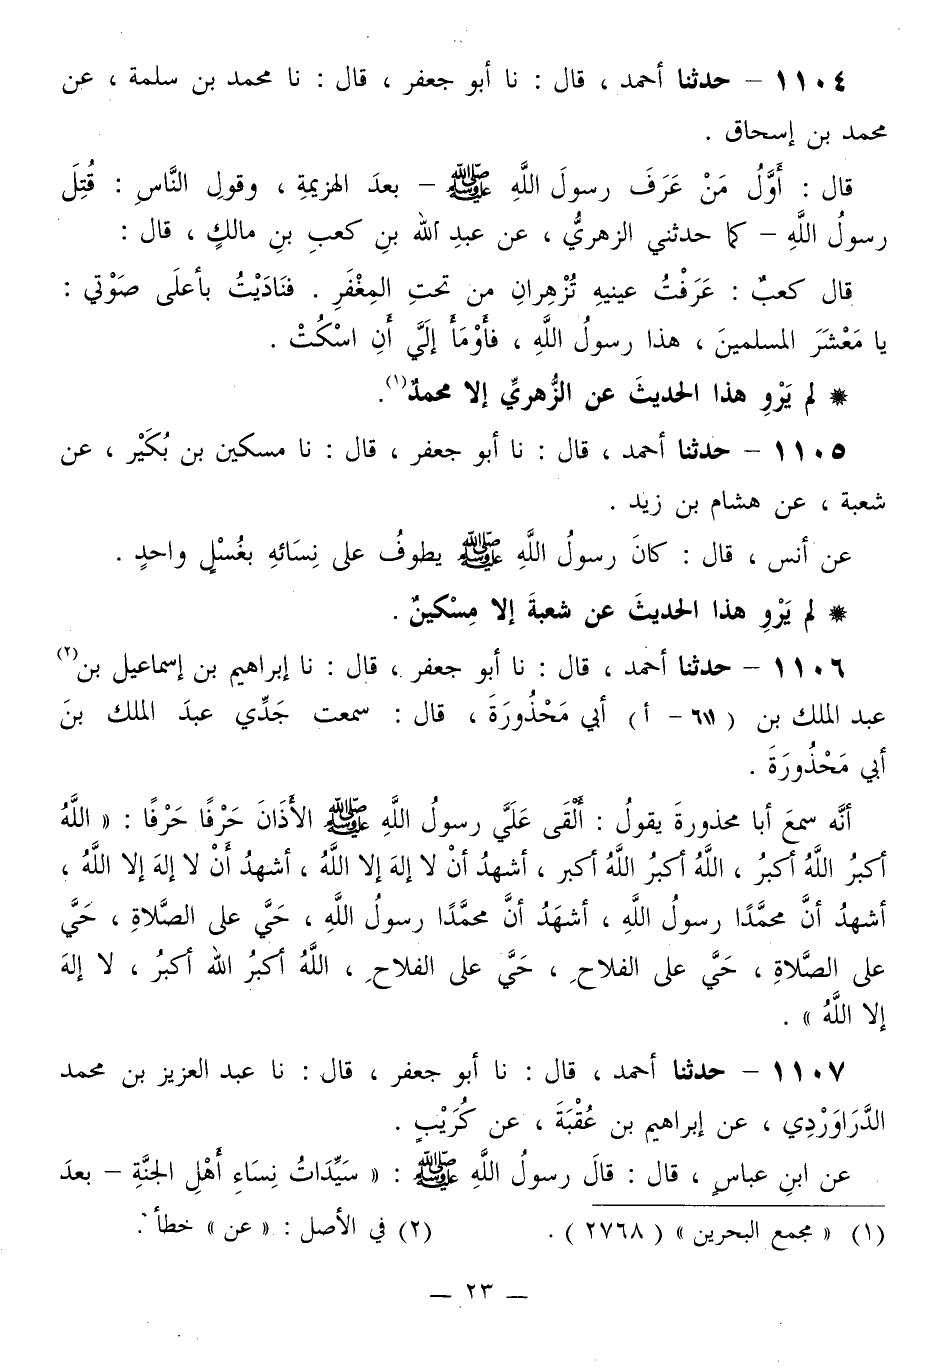 ١١٠٤ – حدثنا أحمد ، قال : نا أبو جعفر ، قال : نا محمد بن سلمة ، عن
محمد بن إسحاق .
قال : أَوَّلُ مَنْ عَرَفَ رسولَ اللَّهِ ﷺ – بعدَ الهزيمةِ ، وقولِ النَّاسِ : قُتِلَ
رسولُ اللَّهِ – كما حدثني الزهريُّ ، عن عبدِ الله بنِ كعبِ بنِ مالكٍ ، قال :
قال كعبٌ : عَرَفْتُ عينيهِ تُزْهِرانِ من تحتِ المِغْفَرِ . فنَادَيْتُ بأعلَى صَوْتي :
يا مَعْشَرَ المسلمينَ ، هذا رسولُ اللَّهِ ، فأَوْمَأَ إلَيَّ أَنِ اسْكُتْ .
* لم يَرْوِ هذا الحديثَ عن الزُّهريِّ إلا محمدٌ(١).
١١٠٥ – حدثنا أحمد ، قال : نا أبو جعفر ، قال : نا مسكين بن بُكَيْر ، عن
شعبة ، عن هشام بن زيد .
عن أنس ، قال : كانَ رسولُ اللَّهِ ﷺ يطوفُ على نِسَائهِ بغُسْلٍ واحدٍ .
* لم يَرْوِ هذا الحديثَ عن شعبةَ إلا مِسْكينٌ .
١١٠٦ – حدثنا أحمد ، قال : نا أبو جعفر ، قال : نا إبراهيم بن إسماعيل بن(٢)
عبد الملك بن ( ٦١١ – أ ) أبي مَحْذُورَةَ ، قال : سمعت جَدِّي عبدَ الملك بنَ
أبي مَحْذُورَةَ .
أنَّه سمعَ أبا محذورةَ يقولُ : أَلْقَى عَلَيَّ رسولُ اللَّهِ ﷺ الأَذَانَ حَرْفًا حَرْفًا : « اللَّهُ
أكبرُ اللَّهُ أكبرُ ، اللَّهُ أكبرُ اللَّهُ أكبر ، أشهدُ أنْ لا إلهَ إلا اللَّهُ ، أشهدُ أَنْ لا إلهَ إلا اللَّهُ ،
أشهدُ أنَّ محمَّدًا رسولُ اللَّهِ ، أشهَدُ أنَّ محمَّدًا رسولُ اللَّهِ ، حَيَّ على الصَّلاةِ ، حَيَّ
على الصَّلاةِ ، حَيَّ على الفلاحِ ، حَيَّ على الفلاحِ ، اللَّهُ أكبرُ الله أكبرُ ، لا إلهَ
إلا اللَّهُ » .
١١٠٧ – حدثنا أحمد ، قال : نا أبو جعفر ، قال : نا عبد العزيز بن محمد
الدَّرَاوَرْدِي ، عن إبراهيم بن عُقْبَةَ ، عن كُرَيْبٍ .
عن ابنِ عباسٍ ، قال : قالَ رسولُ اللَّهِ ﷺ : « سَيِّدَاتُ نِسَاءِ أَهْلِ الجنَّةِ – بعدَ
(١) « مجمع البحرين » ( ٢٧٦٨ ) . (٢) في الأصل : « عن » خطأ .
– ٢٣ –